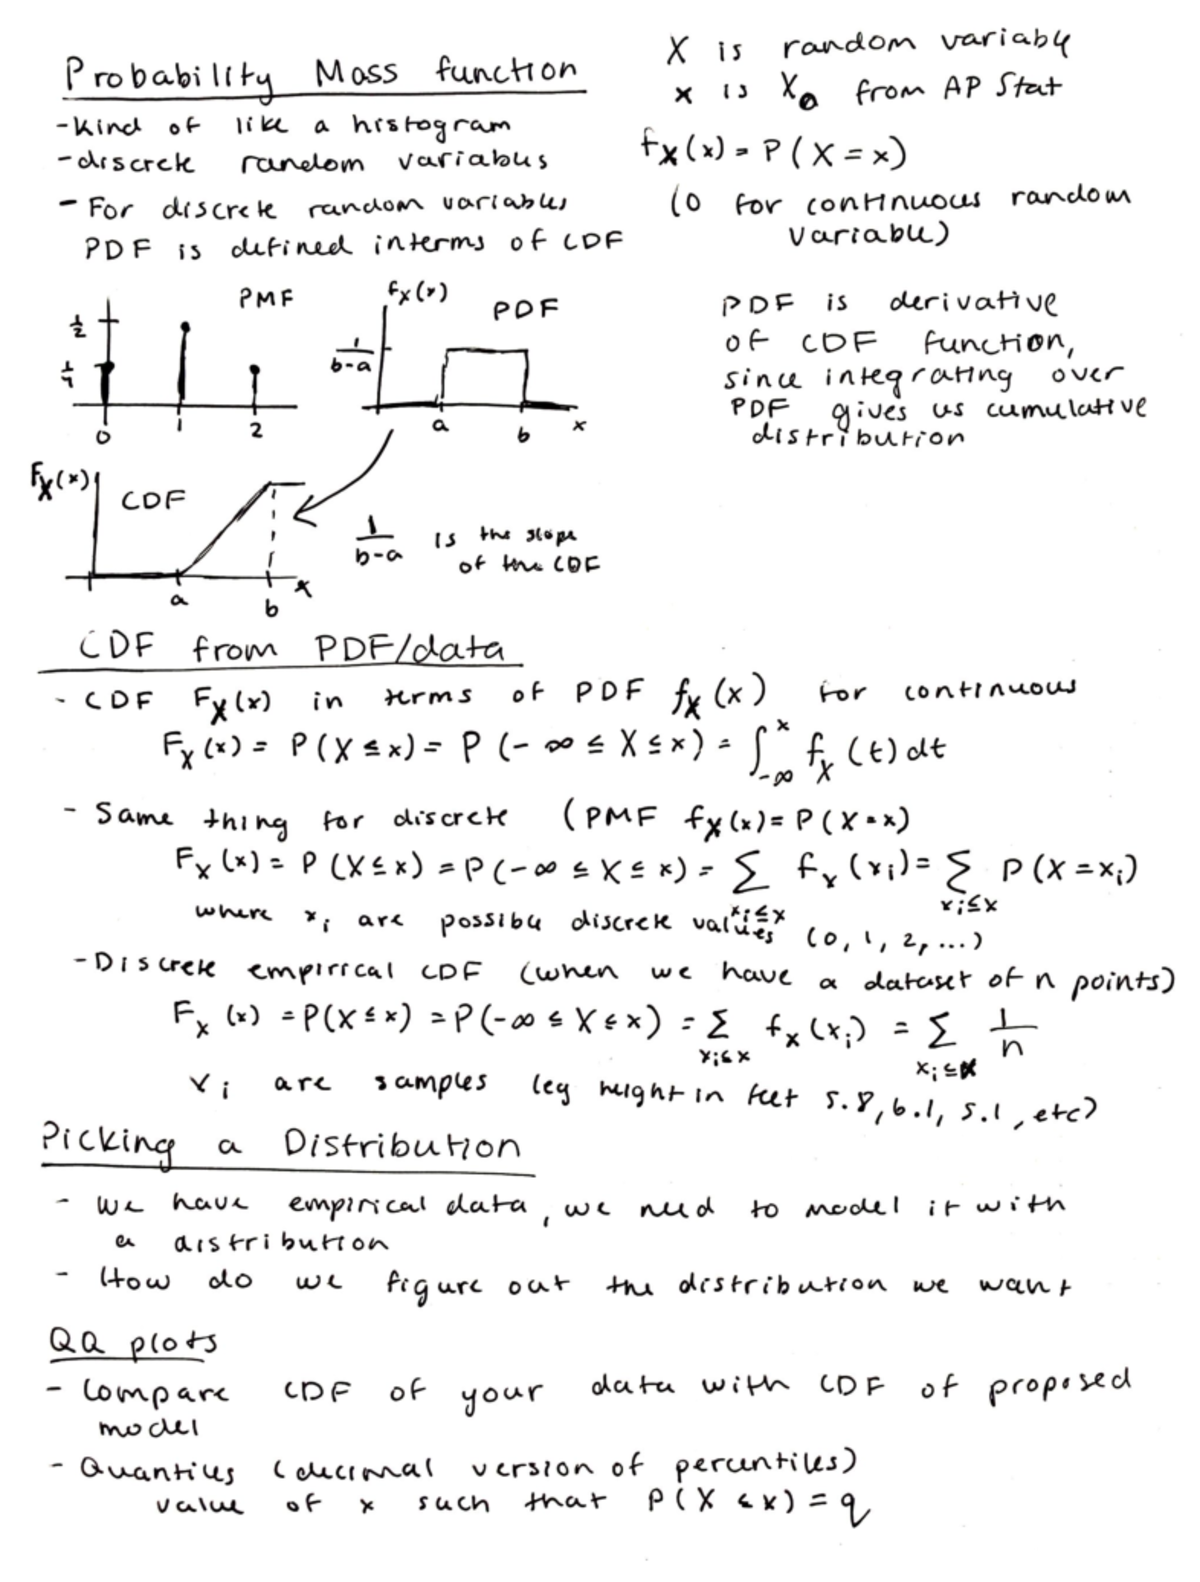 Probability Mass function
-Kind of like a histogram
-discrete random variables
- For discrete random variables
PDF is defined interms of CDF
X is random variable
x is X₀ from AP Stat
fX(x) = P(X = x)
(0 for continuous random
variable)
PMF
1/2
1/4
0 1 2
fX(x)
PDF
1/b-a
a b x
PDF is derivative
of CDF function,
since integrating over
PDF gives us cumulative
distribution
FX(x)
CDF
a b x
1/b-a is the slope
of the CDF
CDF from PDF/data
- CDF FX(x) in terms of PDF fX(x) for continuous
FX(x) = P(X ≤ x) = P(-∞ ≤ X ≤ x) = ∫_{-∞}^{x} fX(t) dt
- Same thing for discrete (PMF fX(x) = P(X = x)
FX(x) = P(X ≤ x) = P(-∞ ≤ X ≤ x) = Σ_{xi≤x} fX(xi) = Σ_{xi≤x} P(X = xi)
where xi are possible discrete values (0, 1, 2, ...)
- Discrete empirical CDF (when we have a dataset of n points)
FX(x) = P(X ≤ x) = P(-∞ ≤ X ≤ x) = Σ_{xi≤x} fX(xi) = Σ_{xi≤x} 1/n
xi are samples (eg height in feet 5.8, 6.1, 5.1, etc)
Picking a Distribution
- We have empirical data, we need to model it with
a distribution
- How do we figure out the distribution we want
QQ plots
- Compare CDF of your data with CDF of proposed
model
- Quantiles (decimal version of percentiles)
value of x such that P(X ≤ x) = q